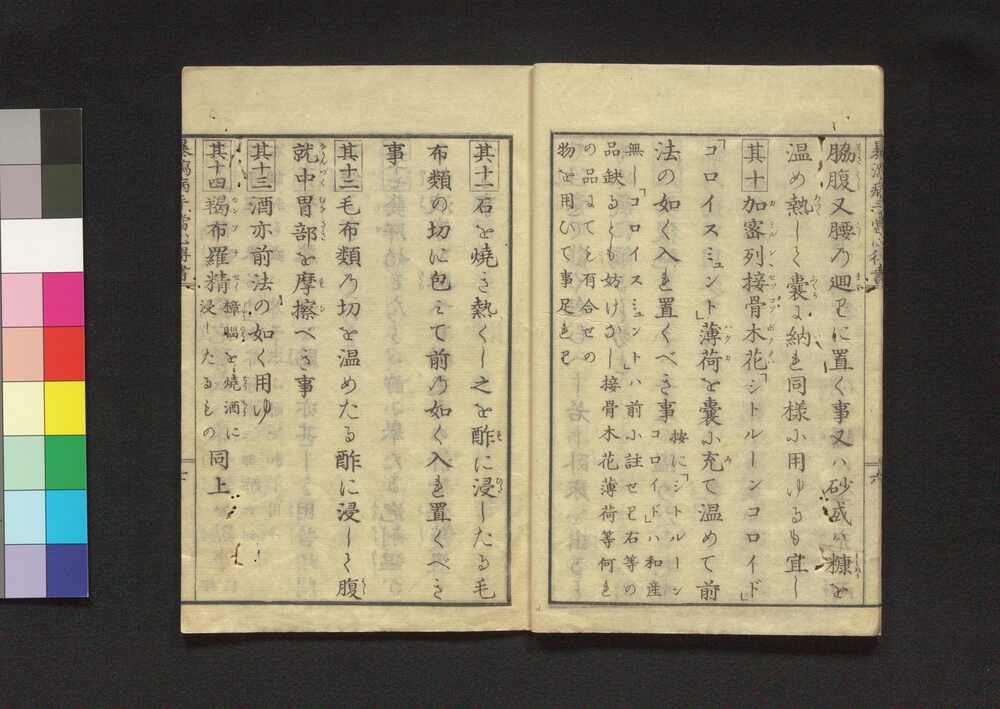 脇腹又腰の廻りに置く事又ハ砂或ハ糠を
温め熱しく嚢に納れ同様に用ゆるも宜し
其十加密列接骨木花「シトルーンコロイド」
「コロイスミュント」薄荷を嚢に充て温めて前
法の如く入れ置くべき事按に「シトルーン
コロイド」ハ和産
無し「コロイスミュント」ハ前に註せり右等の
品缺るとも妨げなし接骨木花薄荷等何れ
の品にても有合せの
物を用ひて事足れり
暴瀉病手当心得書
六
其十一石を焼き熱くし之を酢に浸したる毛
布類の切に包ミて前の如く入れ置くべき
事
其十二毛布類の切を温めたる酢に浸しく腹
就中胃部を摩擦べき事
其十三酒亦前法の如く用ゆ
其十四羯布羅精樟脳を焼酒に
浸したるもの同上
暴瀉病手当心得書
七